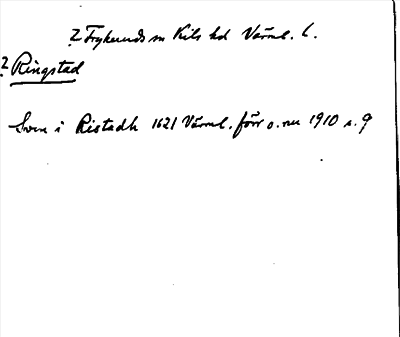 ? Frykerud sn Kils hd Värml. l.
? Ringstad
Sven i Ristadh 1621 Värml. förr o. nu 1910 s. 9